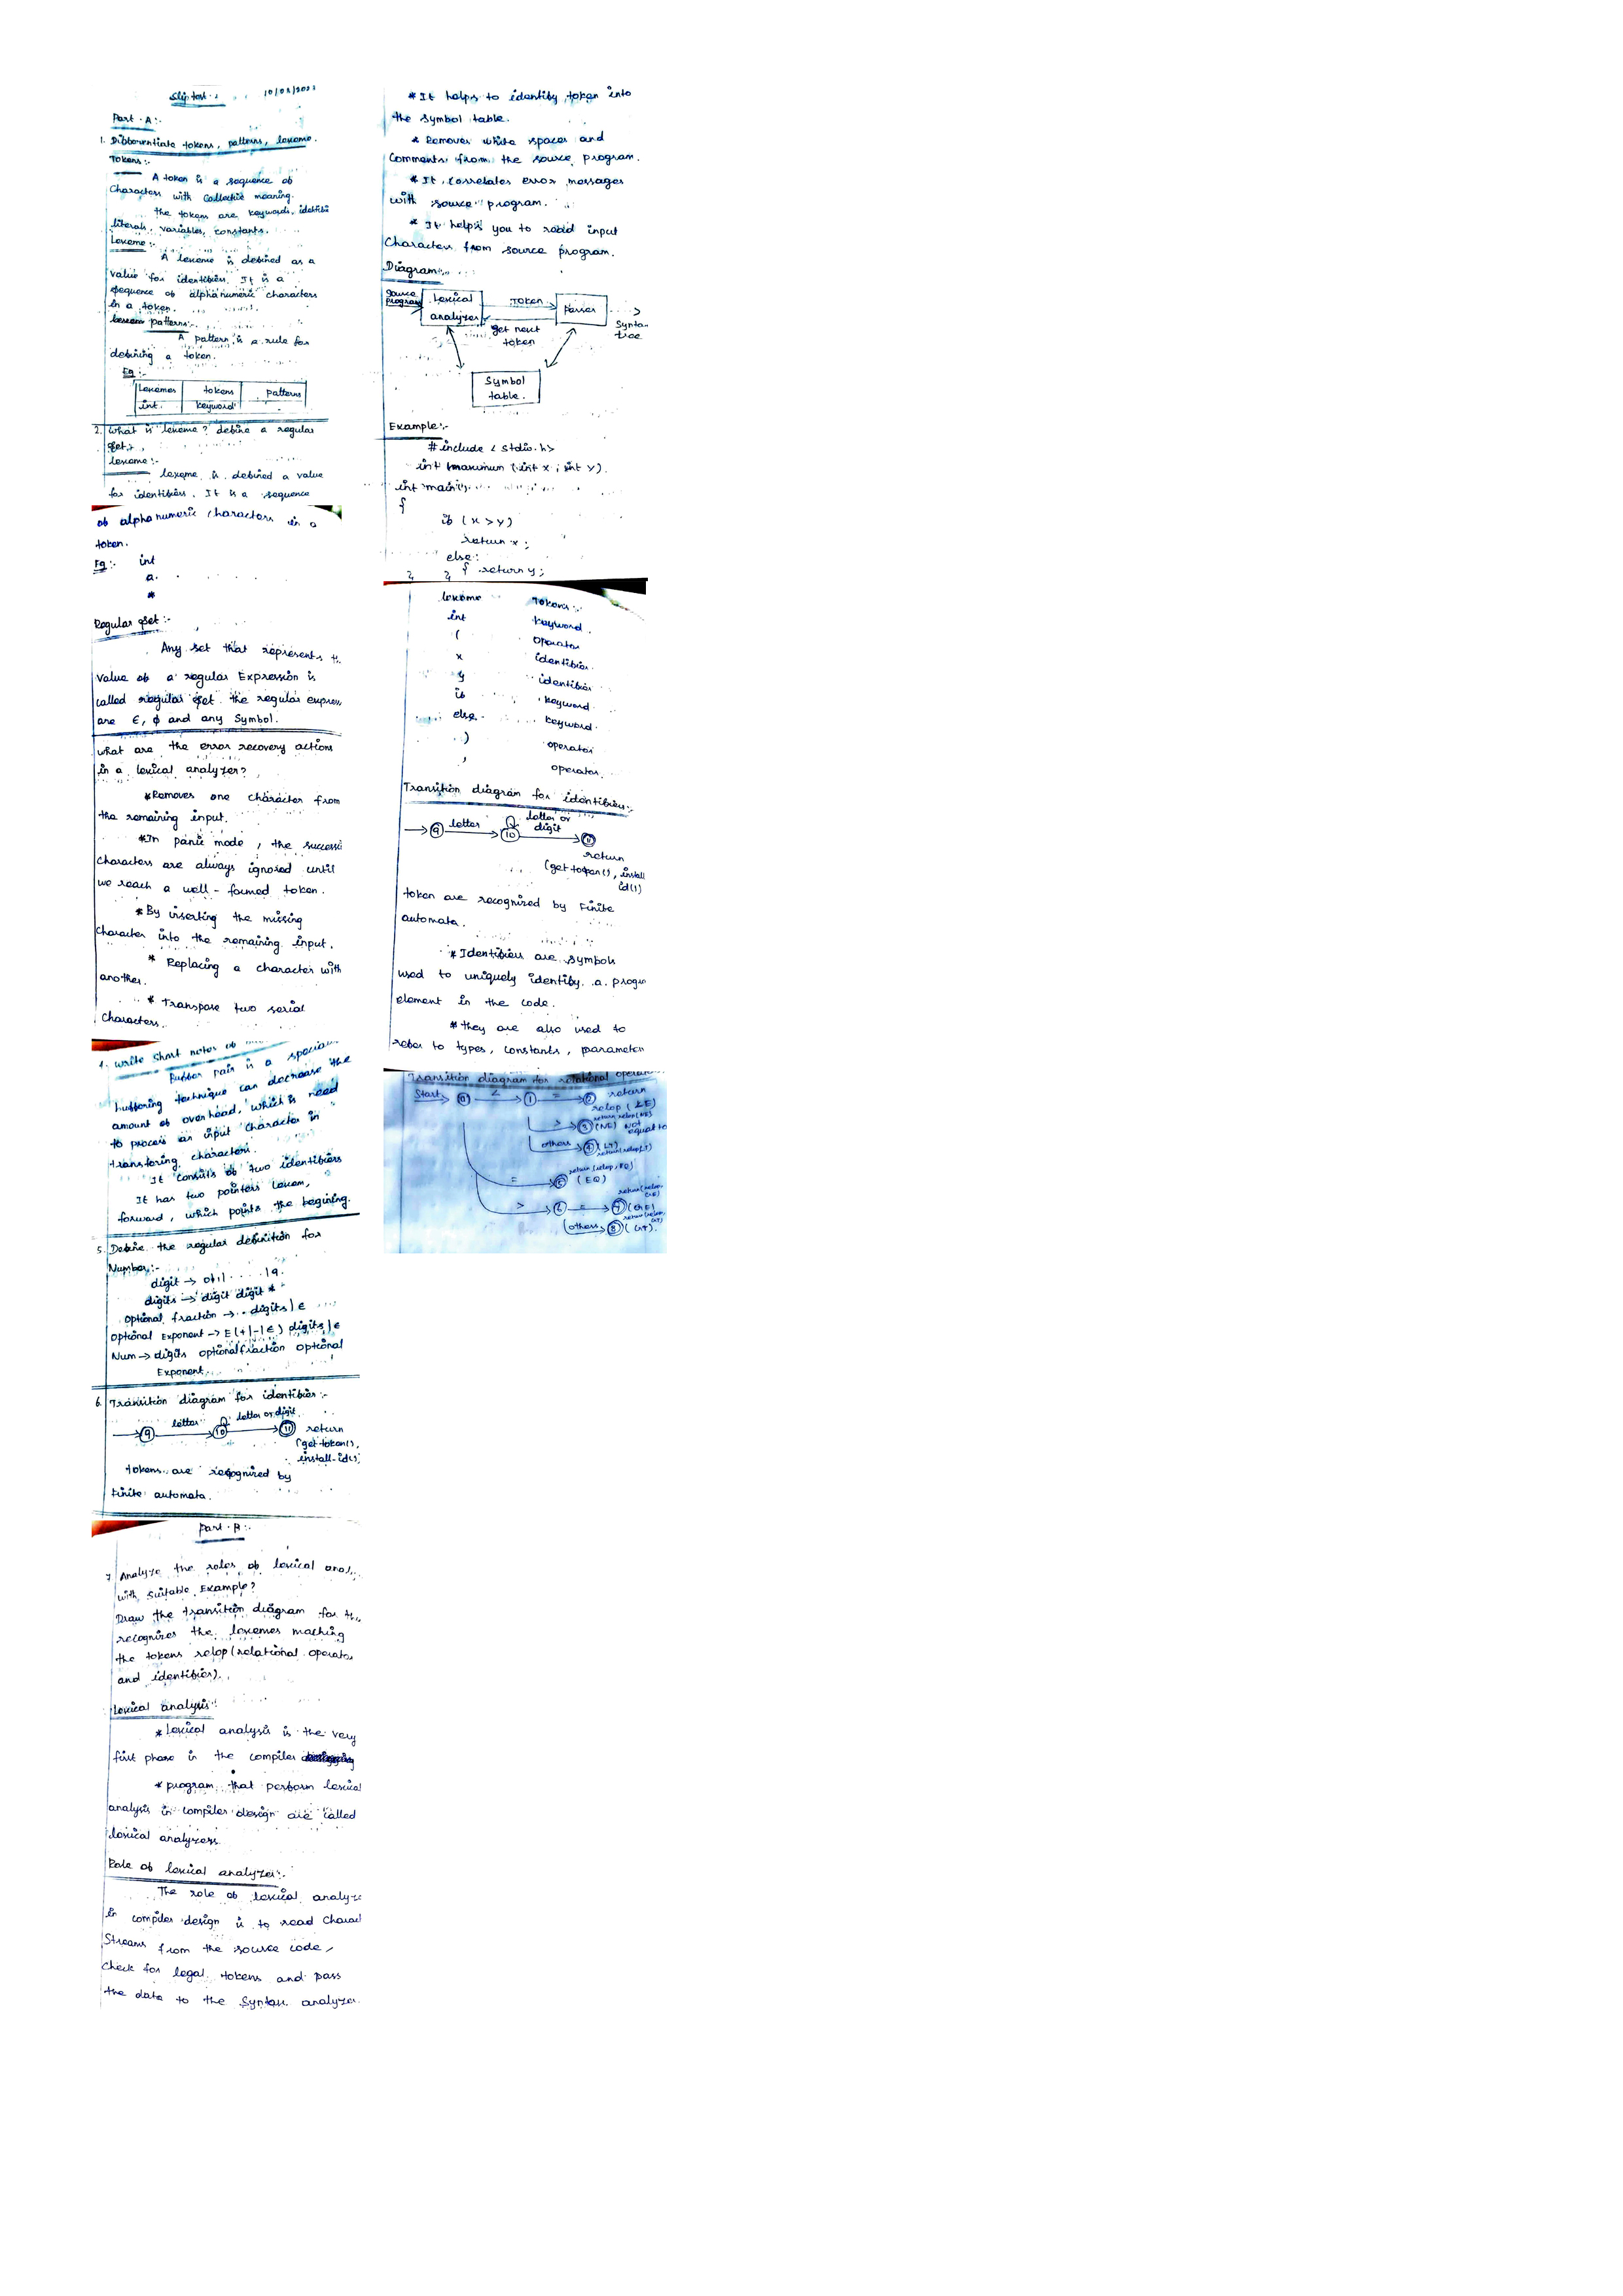 Slip test
Part - A:-
1. Differentiate tokens, patterns, lexeme.
Tokens:-
A token is a sequence of
Characters with Collective meaning.
the tokens are keywords, identifi
literals, variables, constants.
Lexeme:-
A lexeme is defined as a
value for identifiers. It is a
sequence of alphanumeric characters
in a token.
patterns:-
A pattern is a rule for
defining a token.
Eg:-
Lexemes tokens patterns
int keyword
2. What is lexeme? define a regular
set.
lexeme:-
lexeme is defined a value
for identifiers. It is a sequence
of alphanumeric characters in a
token.
Eg:- int
a
*
Regular set:-
Any set that represents th
value of a regular Expression is
called regular set. the regular expres
are ϵ, ϕ and any Symbol.
what are the error recovery actions
in a lexical analyzer?
*Removes one character from
the remaining input.
*In panic mode, the successi
characters are always ignored until
we reach a well-formed token.
*By inserting the missing
Character into the remaining input.
* Replacing a character with
another.
* Transpose two serial
Characters.
4. write short notes of
Buffer pair is a special
buffering technique can decrease the
amount of overhead, which is need
to process an input character in
transforing characters.
It consits of two identifiers
It has two pointers lexem,
forward, which points the begining.
5. Define the regular definition for
Number:-
digit → 0|1|.....|9.
digits → digit digit *
Optional fraction → . digits | ϵ
Optional Exponent → E(+|-|ϵ) digits | ϵ
Num → digits optionalfraction optional
Exponent
6. Transition diagram for identifier:-
letter letter or digit
9 10 11 return
(get token(),
install-id()
tokens are recognized by
Finite automata.
Part - B:-
7 Analyze the roles of lexical anal
with suitable Example?
Draw the transition diagram for th
recognizes the lexemes maching
the tokens relop (relational operato
and identifier).
Lexical analysis:
* Lexical analysis is the very
first phase in the compiler
* program that perform lexical
analysis in compiler design are called
lexical analyzers
Role of lexical analyzer:-
The role of lexical analyze
in compiler design is to read charac
Streams from the source code,
Check for legal tokens and pass
the data to the Syntax analyzer.
* It helps to identify token into
the symbol table.
* Removes white spaces and
Comments from the source program.
* It correlates error messages
with source program.
* It helps you to read input
Characters from source program.
Diagram:-
Source
program
Lexical
analyzer
Token
get next
token
Parser
Synta
tree
Symbol
table.
Example:-
#include <stdio.h>
int maximum (int x ; int y).
int main()
{
if (x > y)
return x ;
else:
{ return y;
} }
lexeme Tokens:-
int keyword.
( operator
x identifier
y identifier
if keyword
else keyword
) operator
, operator
Transition diagram for identifier:-
letter letter or
digit
9 10 11
return
(get token(), install
id()
token are recognized by Finite
automata.
* Identifiers are symbols
used to uniquely identify a progra
element in the code.
* they are also used to
refer to types, constants, parameter
Transition diagram for relational operato
Start 0 < 1 = 2 return
relop (LE)
return relop (NE)
> 3 (NE) Not
equal to
others 4 (LT)
return(relop,LT)
return (relop, EQ)
= 5 (EQ)
return(relop,
GE)
> 6 = 7 (GE)
return(relop,
GT)
others 8 (GT).